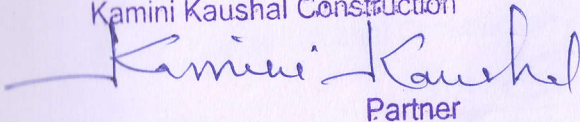 Kamini Kaushal Construction
Kamini Kaushal
Partner